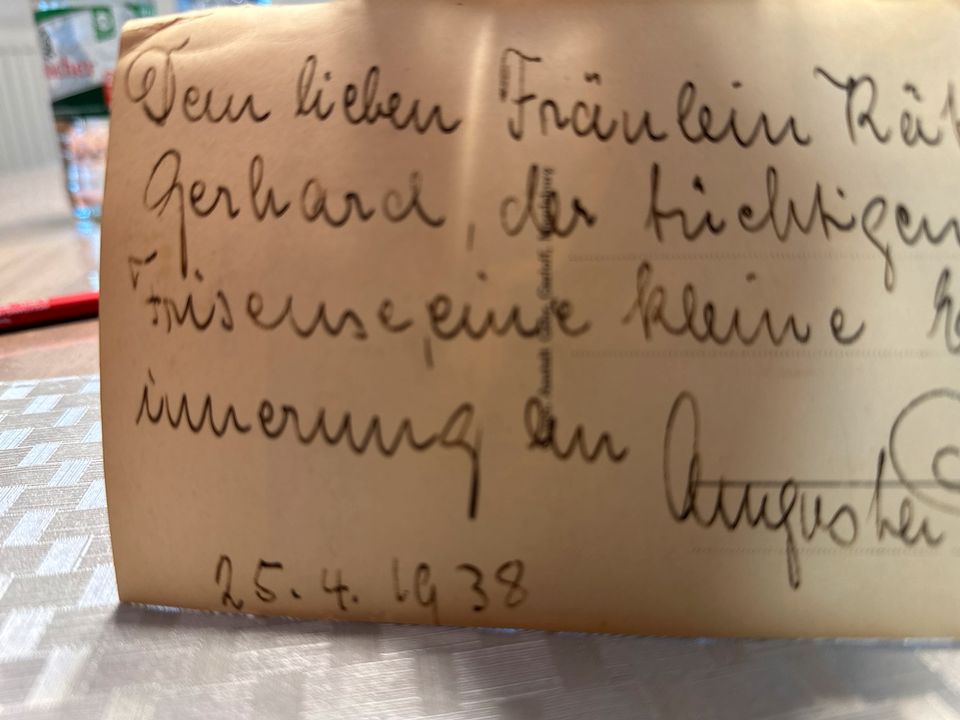 Dem lieben Fräulein Kät
Gerhard, der tüchtigen
Friseuse, eine kleine Er
innerung an
25.4.1938